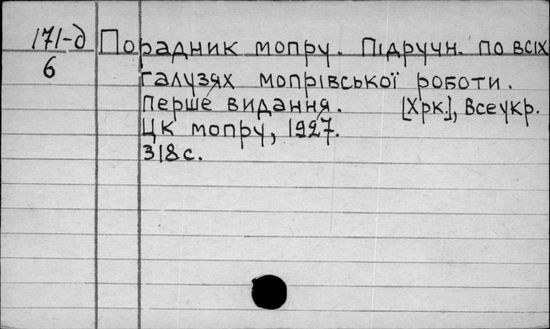 171-д Порадник мопру. Підручн. по всіх
6 галузях мопрівської роботи.
Перше видання. [Хрк.], Всеукр.
ЦК мопру, 1927.
318 с.